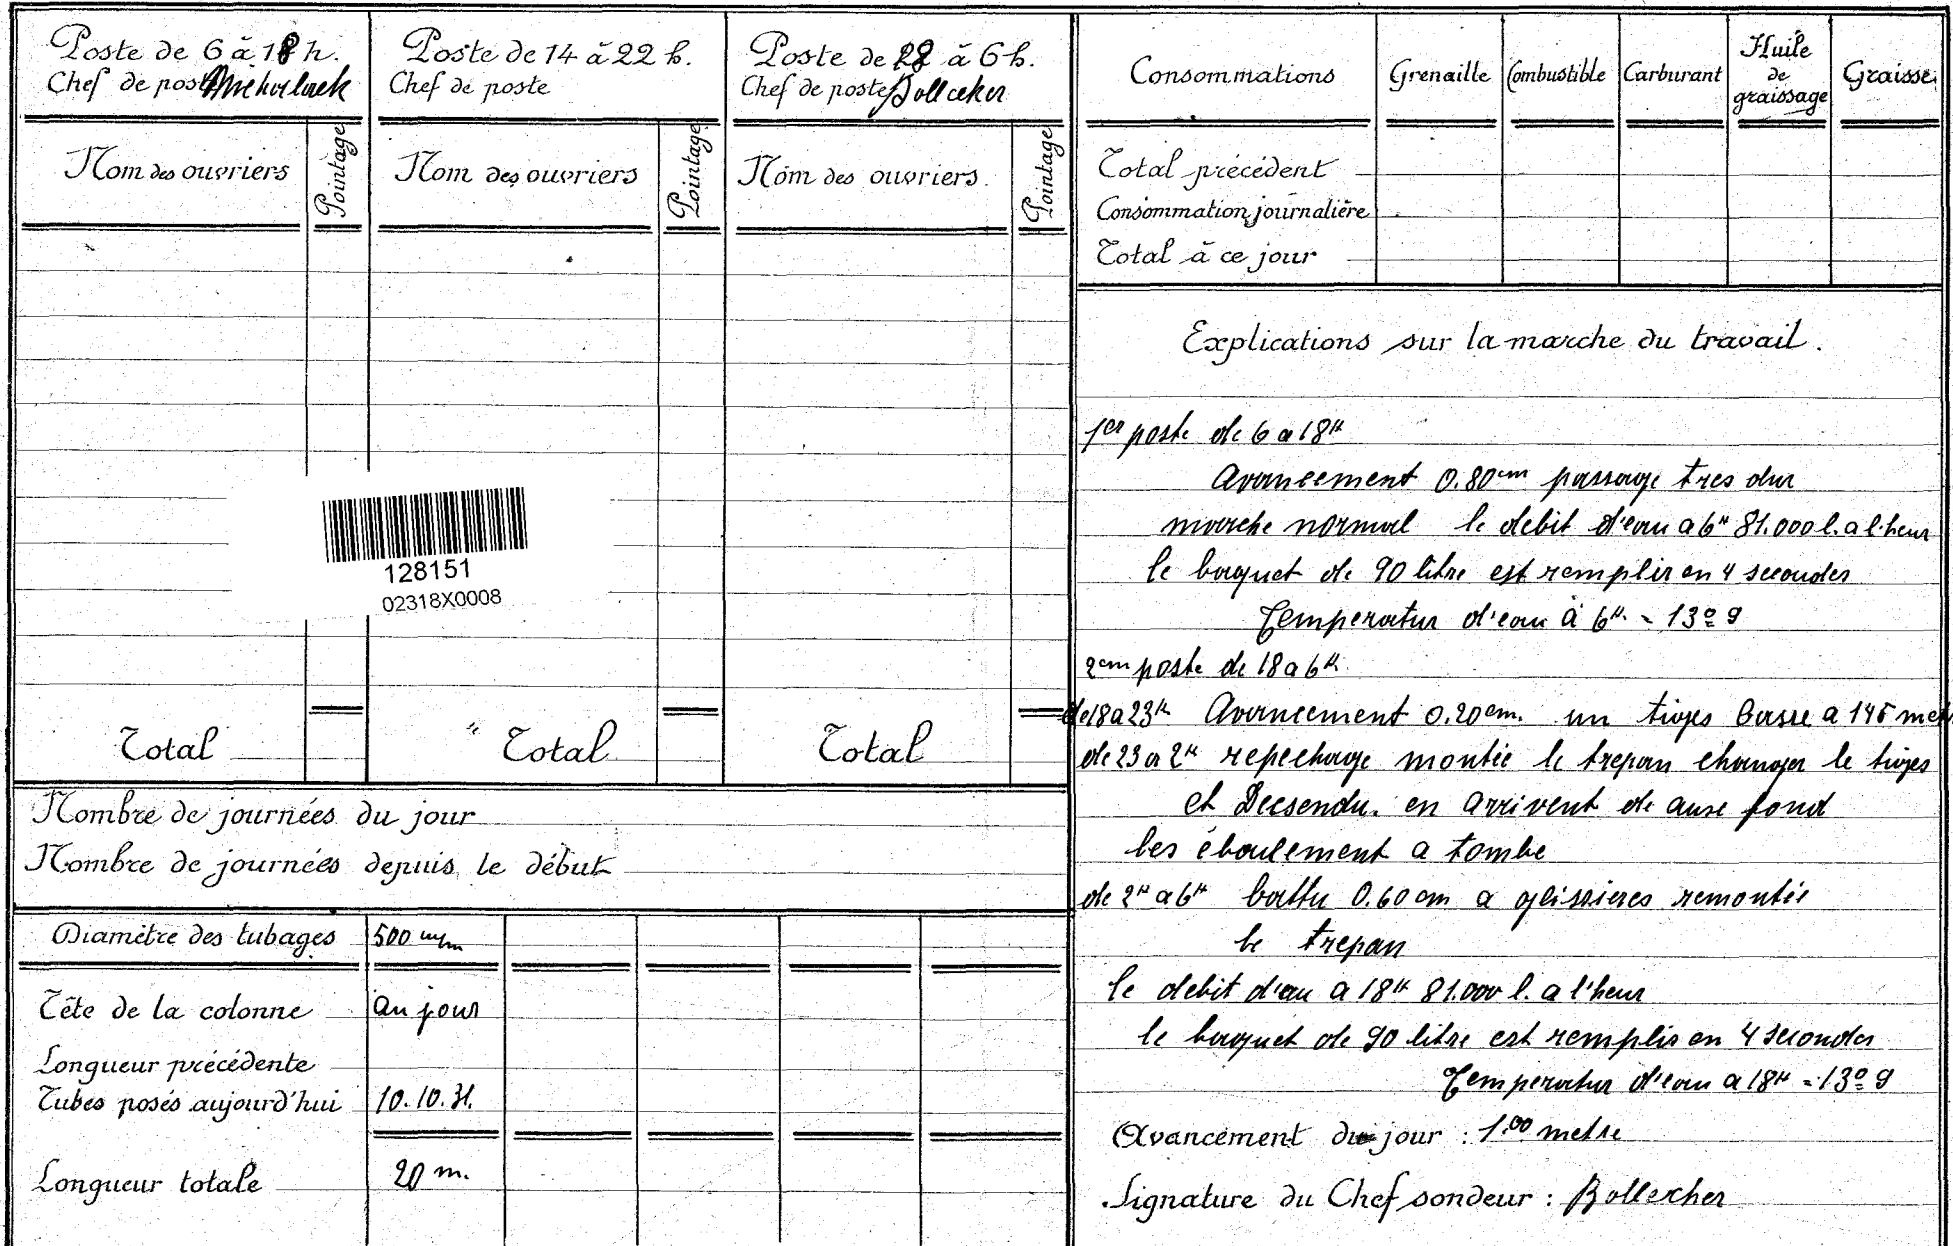 Poste de 6 à 18 h.
Chef de poste
Nom des ouvriers
Pointage
Total
Poste de 14 à 22 h.
Chef de poste
Nom des ouvriers
Pointage
Total
Poste de 18 à 6 h.
Chef de poste Bollecker
Nom des ouvriers
Pointage
Total
128151
02318X0008
Nombre de journées du jour
Nombre de journées depuis le début
Diamètre des tubages 500 m/m
Tête de la colonne au jour
Longueur précédente
Tubes posés aujourd'hui 10.10.31.
Longueur totale 20 m.
Consommations Grenaille Combustible Carburant Huile de graissage Graisse
Total précédent
Consommation journalière
Total à ce jour
Explications sur la marche du travail.
1er poste de 6 a 18H
Avancement 0.80cm passage tres dur
marche normal le debit d'eau a 6H 81.000 l. a l'heur
le baquet de 90 litre est remplir en 4 secondes
Temperatur d'eau à 6H = 13º 9
2em poste de 18 a 6H
de 18 a 23H Avancement 0.20cm. un tiges basse a 145 met
de 23 a 2H repechage montée le trepan changer le tiges
et Decsendu. en arrivent de ause fond
les éboulement a tombe
de 2H a 6H battu 0.60 cm a glissieres remontée
le trepan
le debit d'eau a 18H 81.000 l. a l'heur
le baquet de 90 litre est remplir en 4 secondes
Temperatur d'eau a 18H = 13º 9
Avancement du jour : 1.00 metre
Signature du Chef sondeur : Bollecher